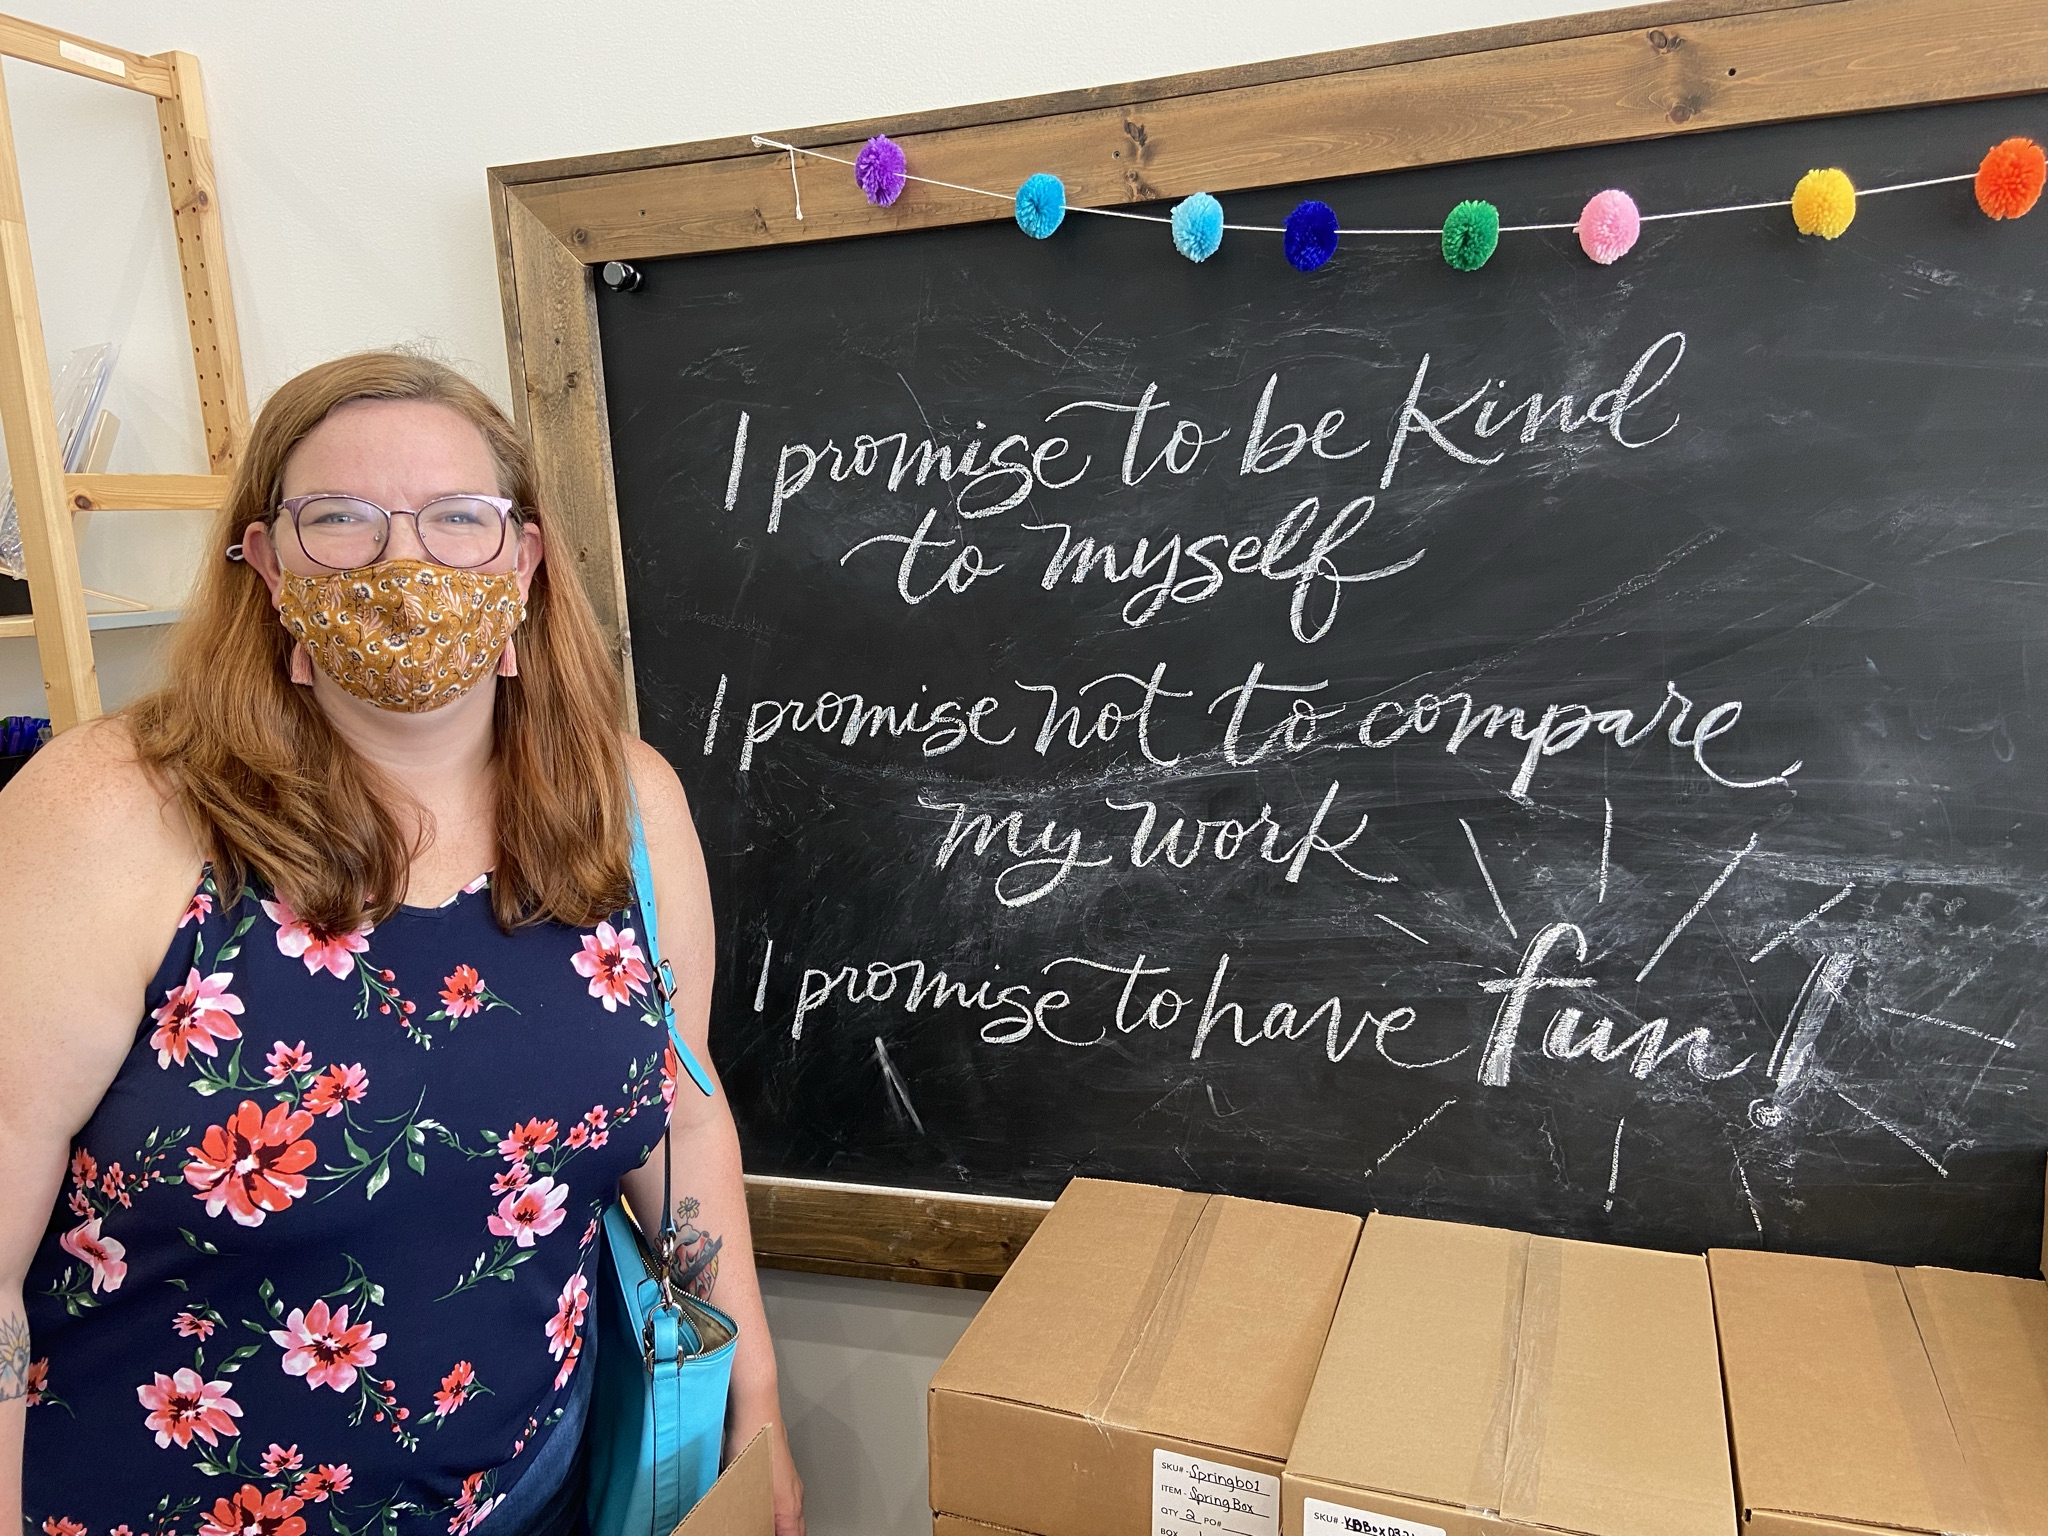 I promise to be kind
to myself
I promise not to compare
my work
I promise to have fun!
SKU#- Springb01
ITEM- Spring Box
QTY 2 PO#
BOX
SKU#-